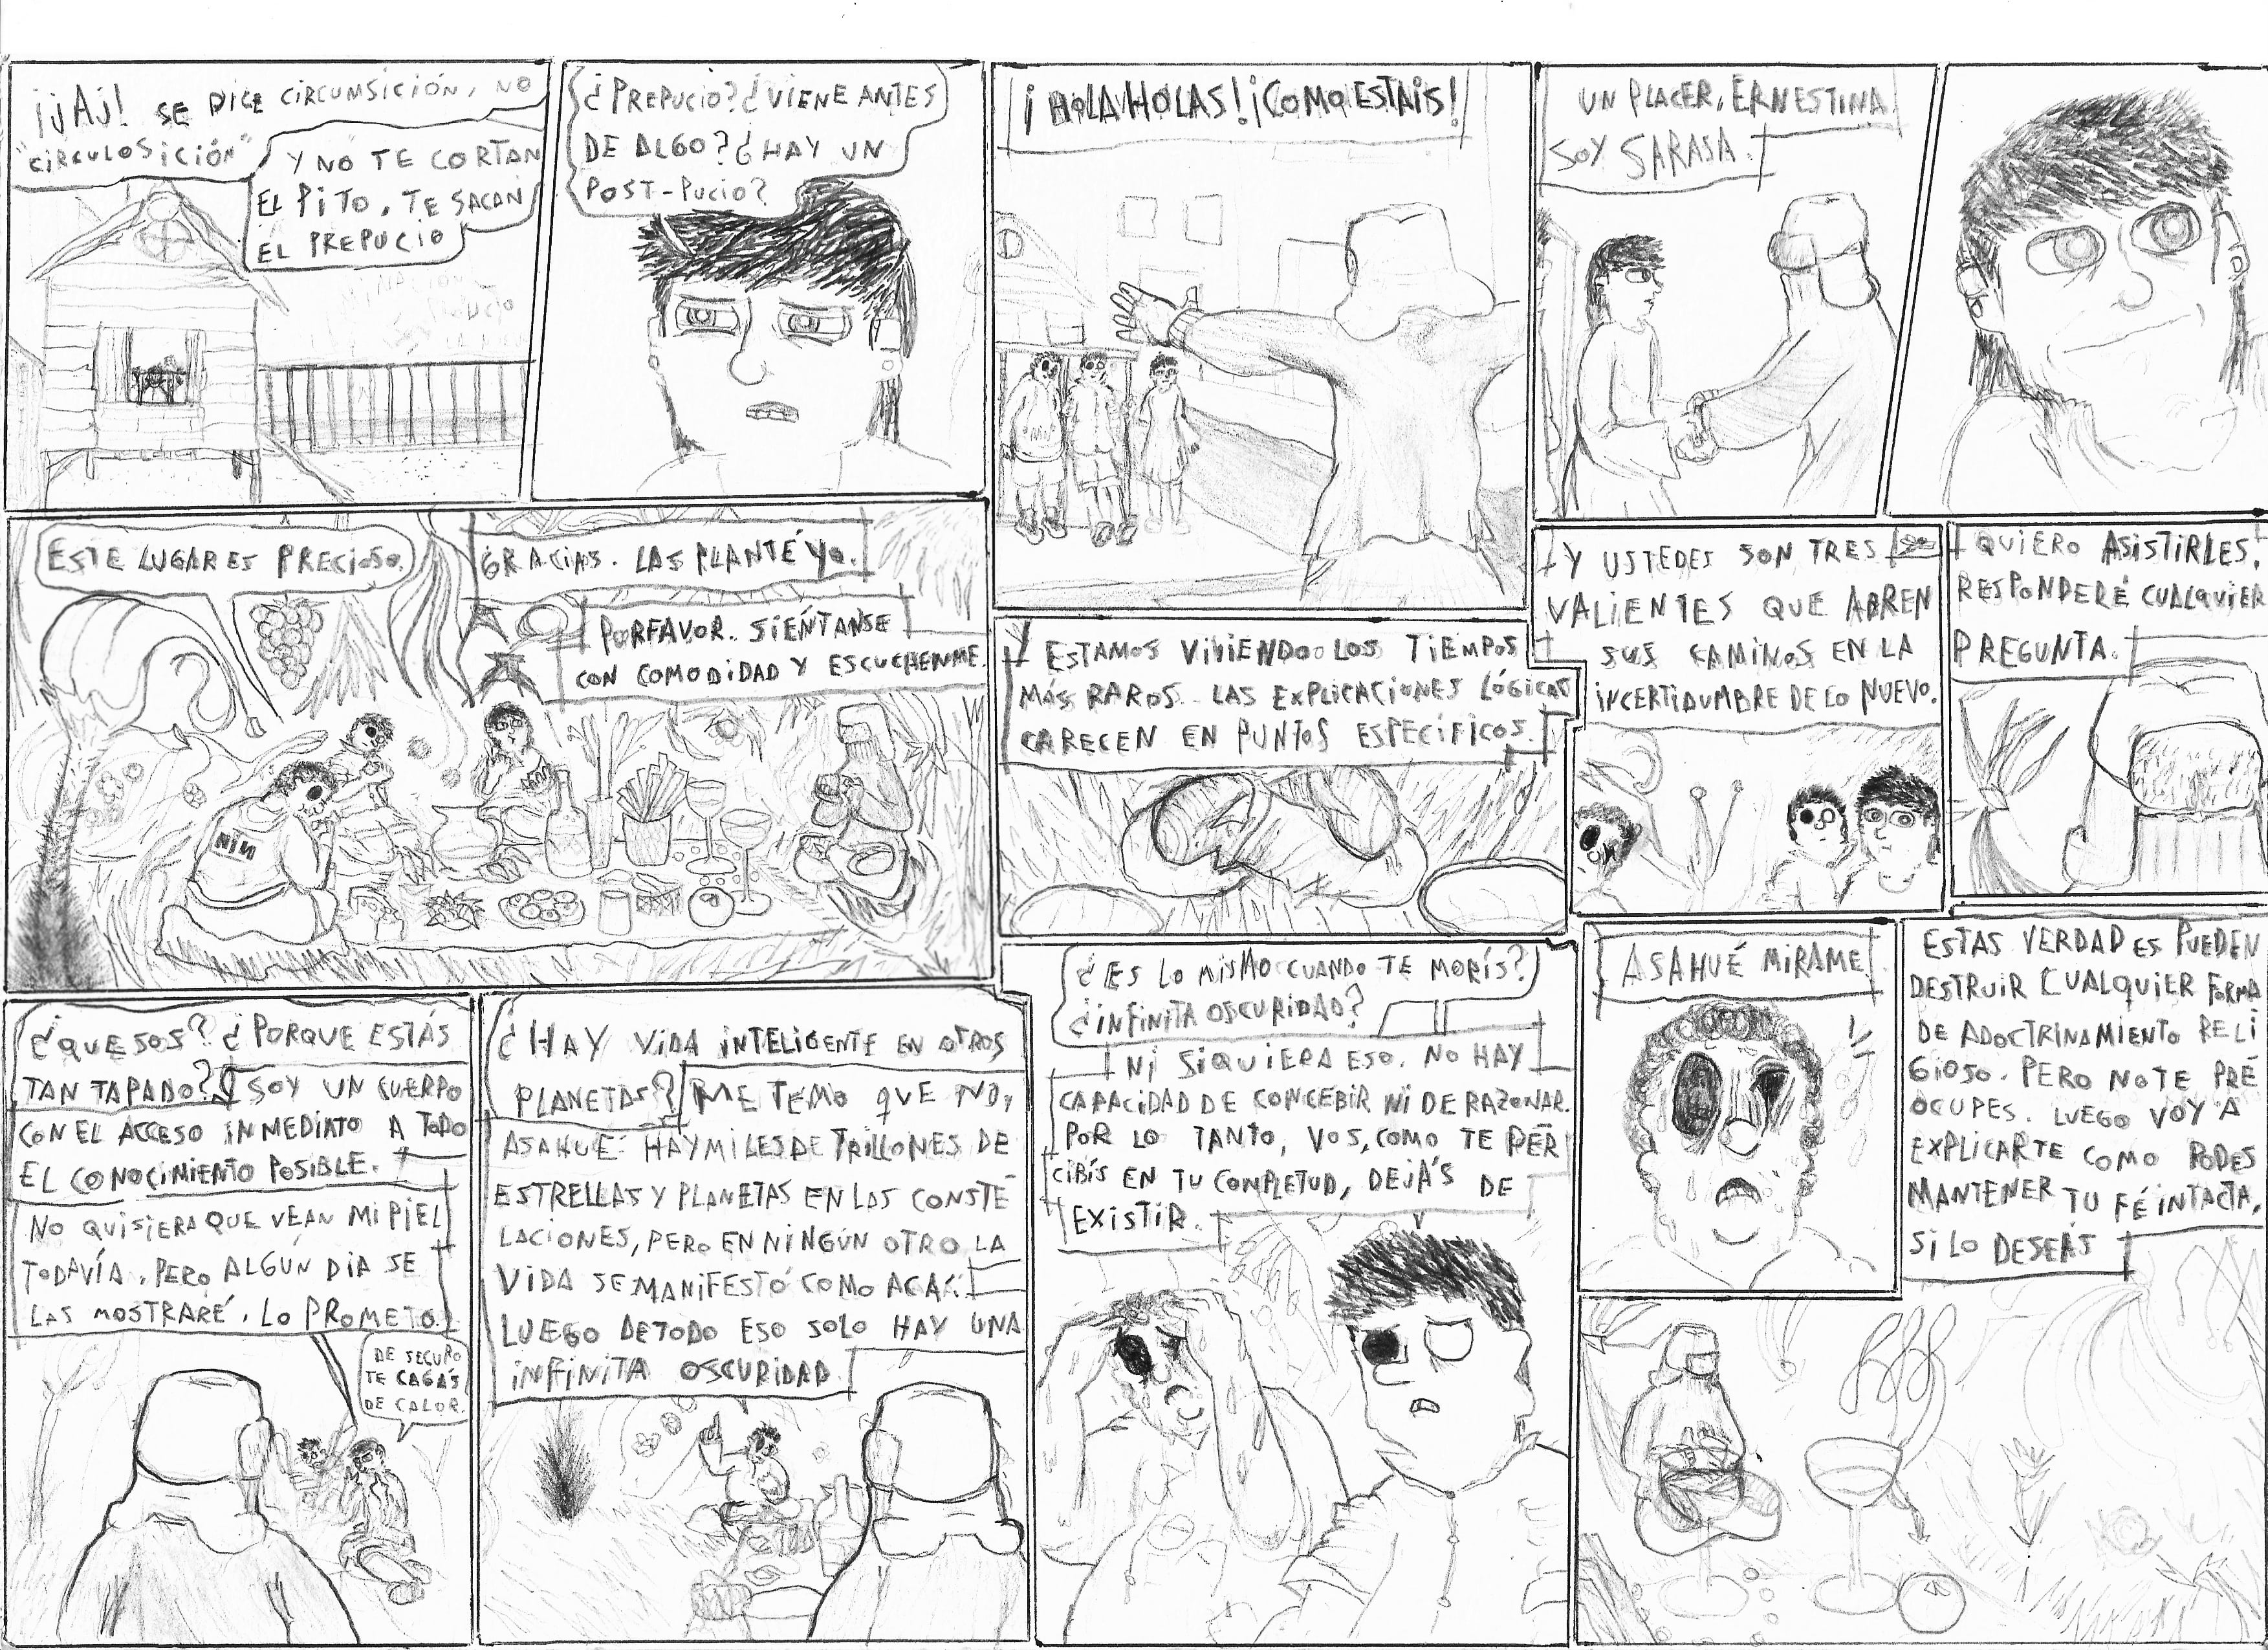 ¡¡JAJ! SE DICE CIRCUMSICIÓN, NO
"CIRCULOSICIÓN"
Y NO TE CORTAN
EL PITO, TE SACAN
EL PREPUCIO
¿PREPUCIO? ¿VIENE ANTES
DE ALGO? ¿HAY UN
POST-PUCIO?
¡HOLA HOLAS! ¡COMO ESTAIS!
UN PLACER, ERNESTINA.
SOY SARASA.
ESTE LUGAR ES PRECIOSO.
GRACIAS. LAS PLANTÉ YO.
PORFAVOR. SIÉNTANSE
CON COMODIDAD Y ESCUCHENME.
NIN
ESTAMOS VIVIENDO LOS TIEMPOS
MÁS RAROS. LAS EXPLICACIONES LÓGICAS
CARECEN EN PUNTOS ESPECÍFICOS.
Y USTEDES SON TRES
VALIENTES QUE ABREN
SUS CAMINOS EN LA
INCERTIDUMBRE DE LO NUEVO.
QUIERO ASISTIRLES.
RESPONDERÉ CUALQUIER
PREGUNTA.
¿QUE SOS? ¿PORQUE ESTÁS
TAN TAPADO?
SOY UN CUERPO
CON EL ACCESO INMEDIATO A TODO
EL CONOCIMIENTO POSIBLE.
NO QUISIERA QUE VEAN MI PIEL
TODAVÍA. PERO ALGÚN DIA SE
LAS MOSTRARÉ. LO PROMETO.
DE SEGURO
TE CAGÁS
DE CALOR.
¿HAY VIDA INTELIGENTE EN OTROS
PLANETAS?
ME TEMO QUE NO,
ASAHUÉ. HAY MILES DE TRILLONES DE
ESTRELLAS Y PLANETAS EN LAS CONSTE
LACIONES, PERO EN NINGÚN OTRO LA
VIDA SE MANIFESTÓ COMO ACÁ.
LUEGO DE TODO ESO SOLO HAY UNA
INFINITA OSCURIDAD.
¿ES LO MISMO CUANDO TE MORÍS?
¿INFINITA OSCURIDAD?
NI SIQUIERA ESO. NO HAY
CAPACIDAD DE CONCEBIR NI DE RAZONAR.
POR LO TANTO, VOS, COMO TE PER
CIBÍS EN TU COMPLETUD, DEJÁS DE
EXISTIR.
ASAHUÉ MIRAME
ESTAS VERDADES PUEDEN
DESTRUIR CUALQUIER FORMA
DE ADOCTRINAMIENTO RELI
GIOSO. PERO NO TE PRE
OCUPES. LUEGO VOY A
EXPLICARTE COMO PODES
MANTENER TU FÉ INTACTA,
SI LO DESEÁS